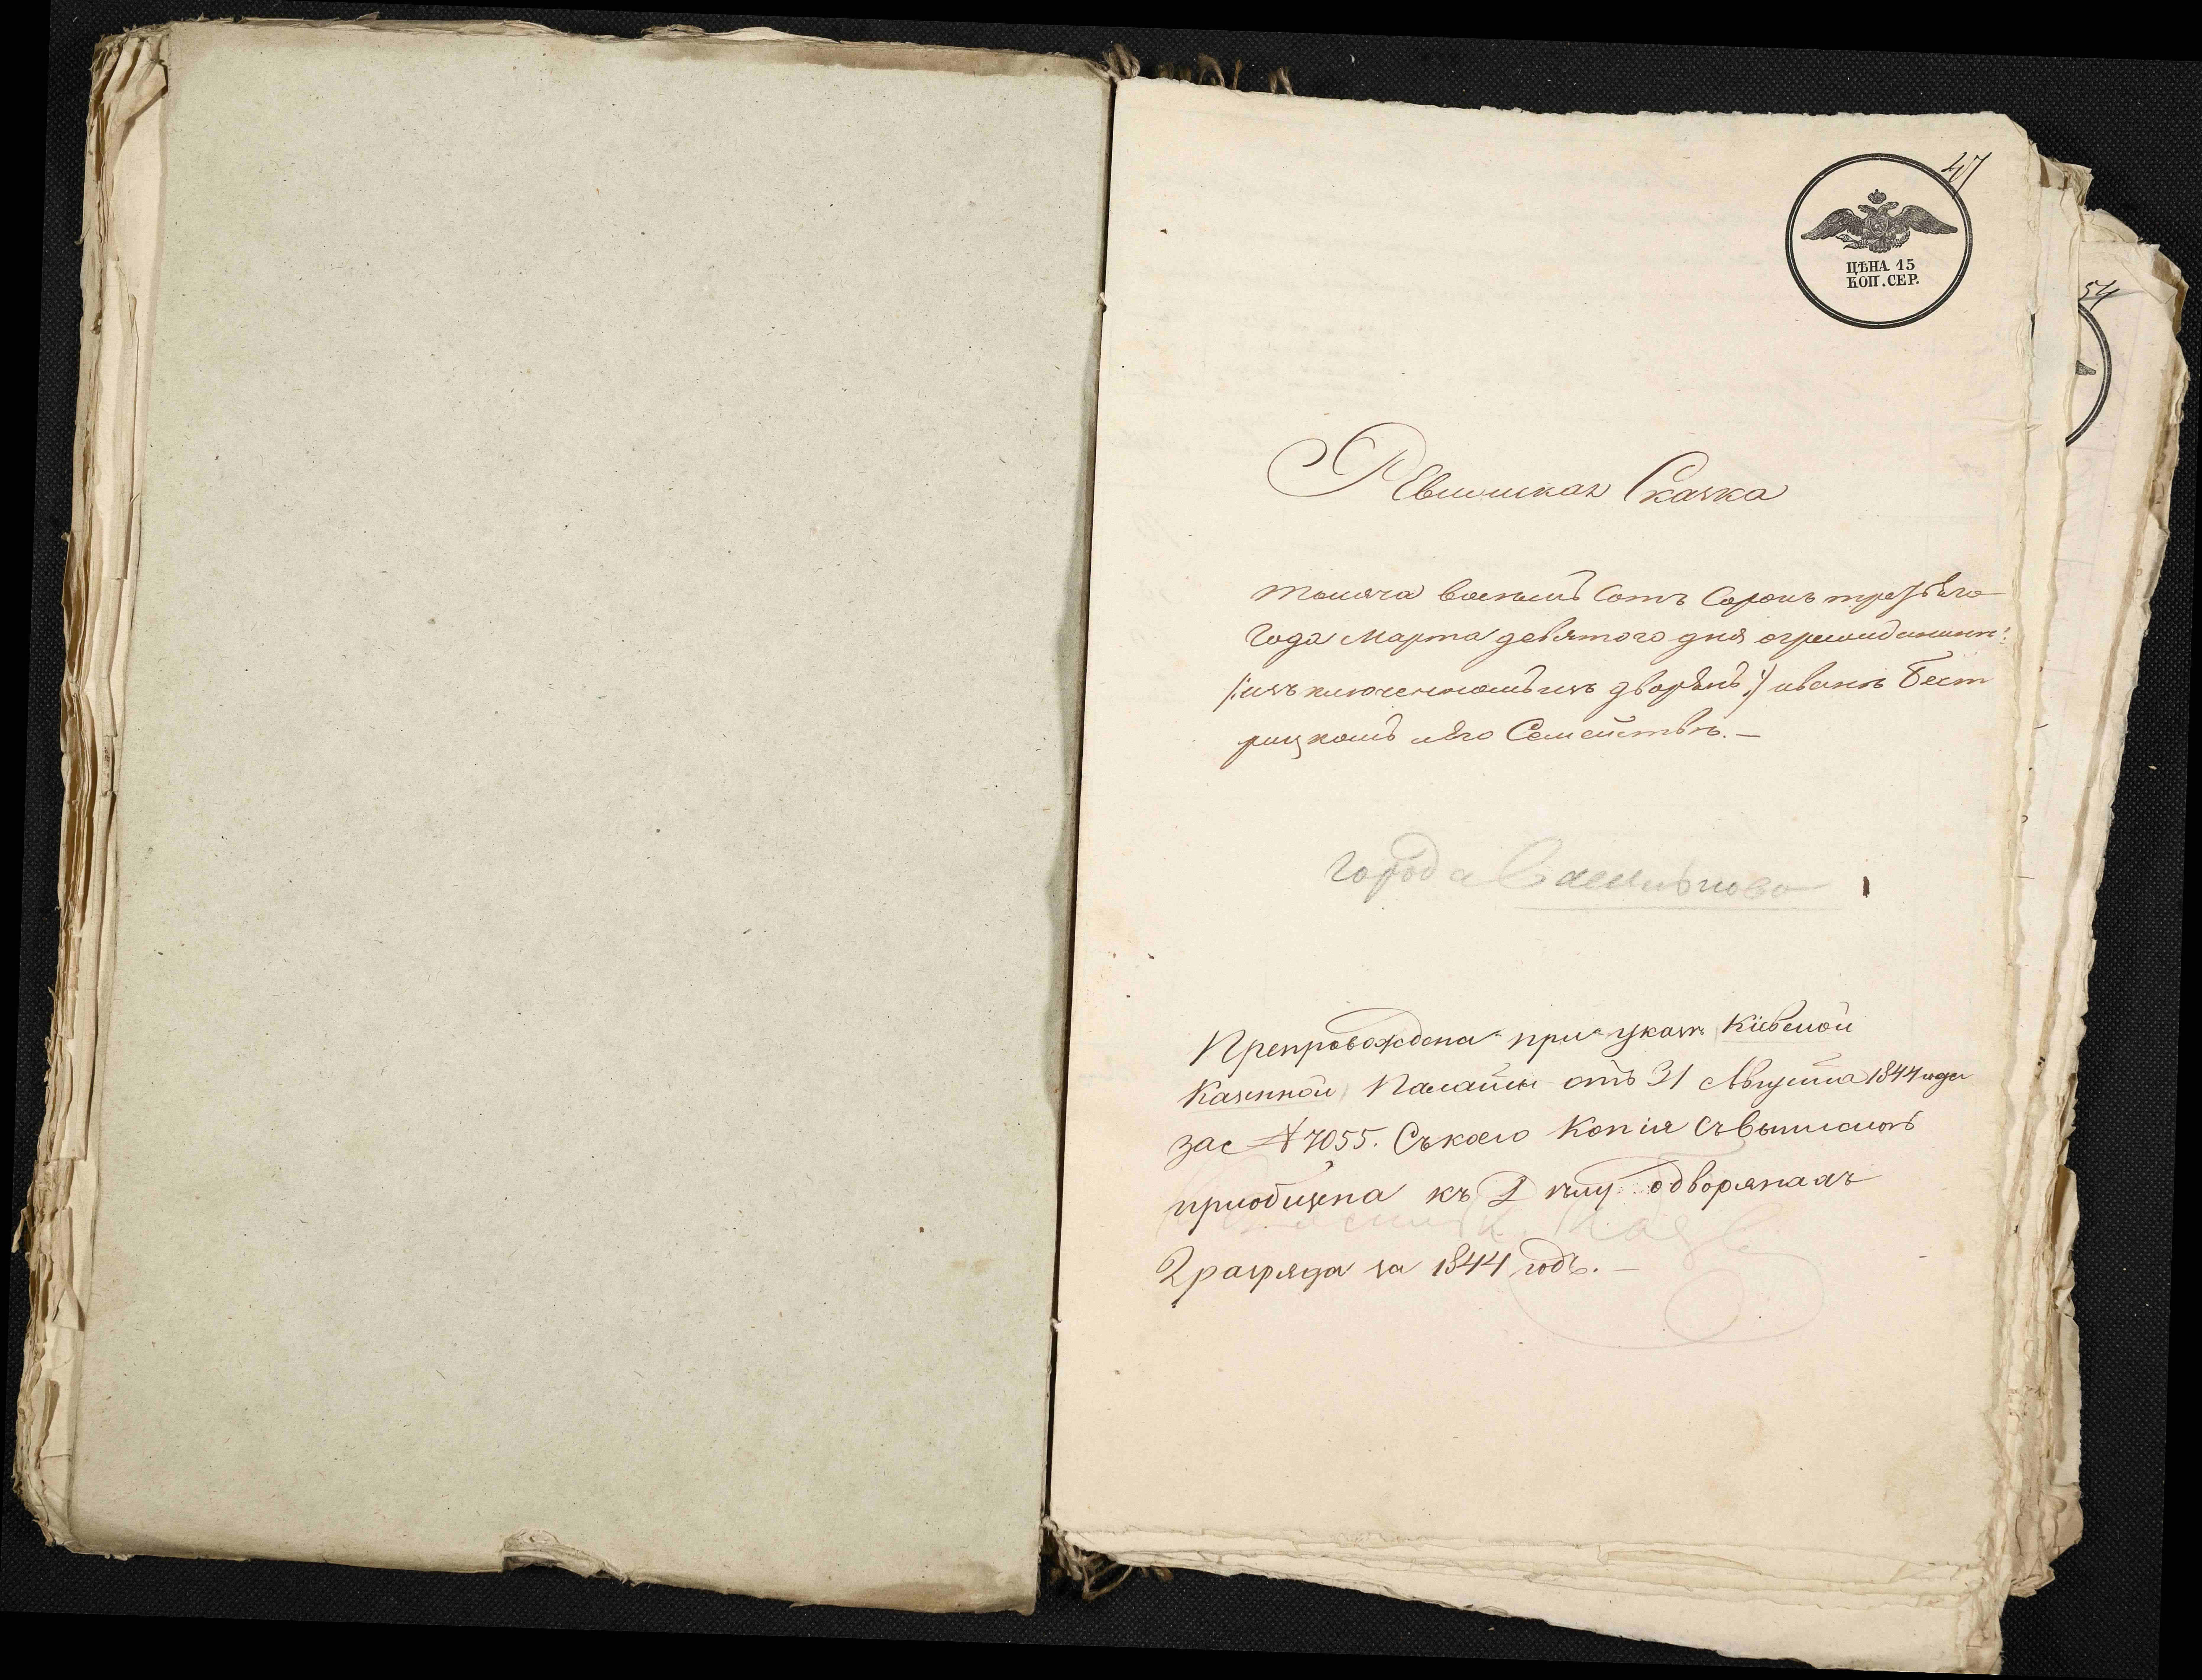 47
ЦѢНА 15
КОП. СЕР.
54
Ревизская Сказка
тысяча восемь Сотъ Сорокъ третьего
Года Марта девятого дня огражданинѣ:
/:изъ ключенномъ изъ дворянъ:/ иванѣ Бест
рицкомъ иего Семействѣ. —
города Василькова
Препровождена при указѣ Кіевской
Казенной Палаты отъ 31 Августа 1844 года
за № 7055. Съ коего Копія съ
приобщена къ 2 одворянахъ
2 разряда за 1844 годъ. —